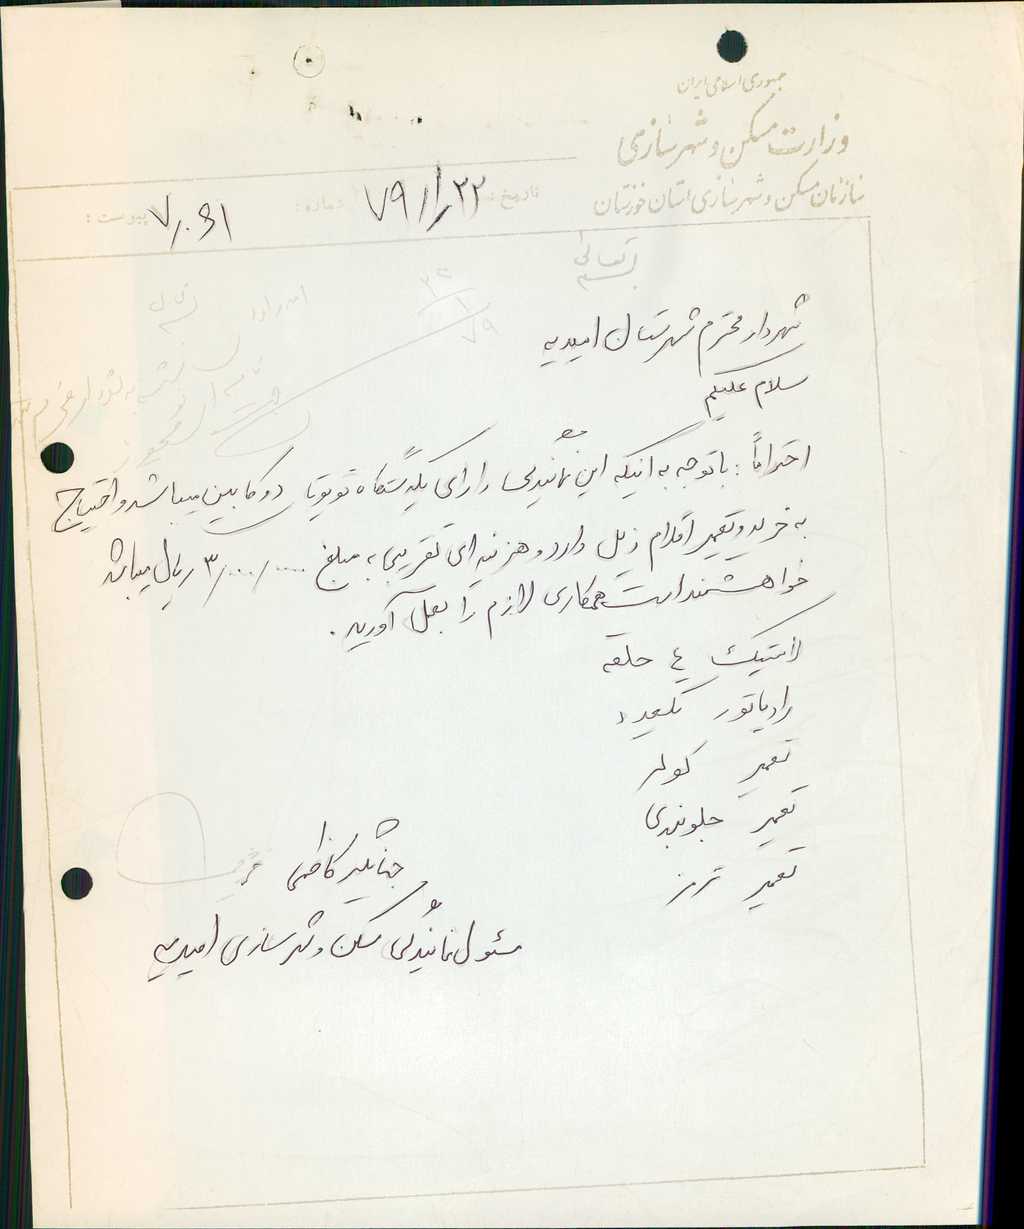 جمهوری اسلامی ایران
وزارت مسکن و شهرسازی
سازمان مسکن و شهرسازی استان خوزستان
تاریخ: ۷۹/۱/۲۲ شماره: ۷۰۵۱ پیوست:
بسمه تعالی
شهردار محترم شهرستان امیدیه
سلام علیکم
احتراماً: با توجه به اینکه این نمایندگی دارای یکدستگاه تویوتا دو کابین میباشد و احتیاج
به خرید و تعمیر اقلام ذیل دارد و هزینه ای تقریبی به مبلغ ۳/۰۰۰/۰۰۰ ریال میباشد
خواهشمند است همکاری لازم را بعمل آورید.
لاستیک ٤ حلقه
رادیاتور یکعدد
تعمیر کولر
تعمیر جلوبندی
تعمیر ترمز
کاظمی
مسئول نمایندگی مسکن و شهرسازی امیدیه